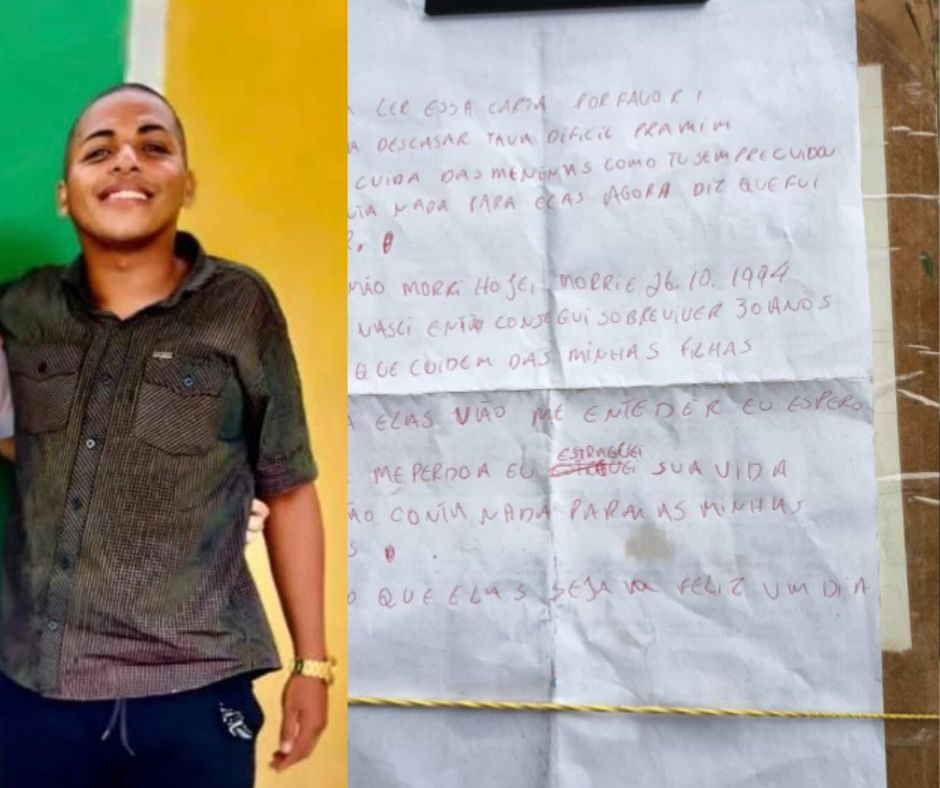 LER ESSA CARTA POR FAVOR!
A DESCASAR TAVA DIFICIL PRA MIM
CUIDA DAS MENINAS COMO TU SEMPRE CUIDOU
NADA PARA ELAS AGORA DIZ QUE FUI
R.
MÃO MORRI HOJEI MORRI E 26.10.1994
NASCI ENTÃO CONSEGUI SOBREVIVER 30 ANOS
QUE CUIDEM DAS MINHAS FILHAS
A ELAS VÃO ME ENTEDER EU ESPERO
ME PERDOA EU ESTRAGUEI SUA VIDA
ÃO CONTA NADA PARA AS MINHAS
S
O QUE ELAS SEJA FELIZ UM DIA